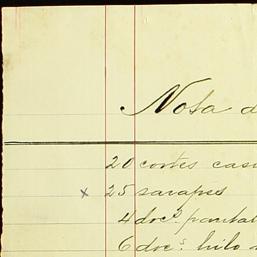 Nota d
20 cortes casi
x 25 sarapes
4 doc.s pantal
6 doc.s hilo